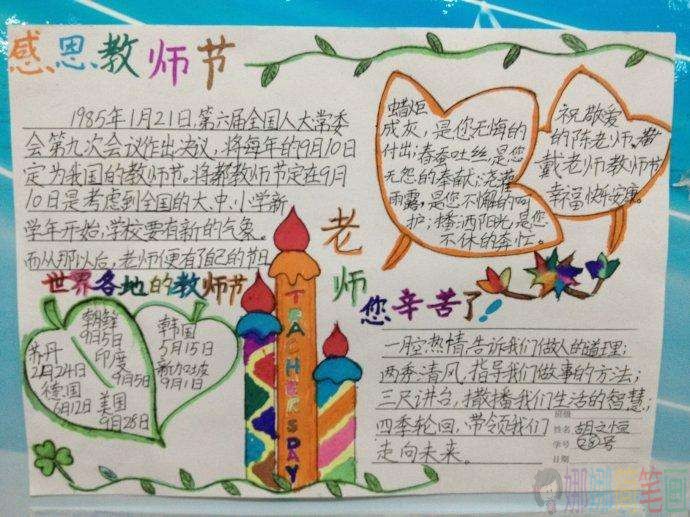 感恩教师节
1985年1月21日,第六届全国人大常委
会第九次会议作出决议,将每年的9月10日
定为我国的教师节。将教师节定在9月
10日是考虑到全国的大、中、小学新
学年开始,学校要有新的气象。
而从那以后,老师便有了自己的节日
蜡炬
成灰,是您无悔的
付出;春蚕吐丝,是您
无怨的奉献;浇灌
雨露,是您不懈的呵
护;播洒阳光,是您
不休的奔忙。
祝敬爱
的陈老师、
戴老师教师节
幸福快乐安康。
世界各地的教师节
朝鲜
9月5日
印度
9月5日
苏丹
2月24日
德国
6月12日
美国
9月28日
韩国
5月15日
新加坡
9月1日
TEACHERS DAY
老师
您辛苦了!
一腔热情,告诉我们做人的道理;
两季清风,指导我们做事的方法;
三尺讲台,播我们生活的智慧;
四季轮回,带领我们
走向未来。
班级
姓名 胡之恒
学号
日期
娜娜 笔画